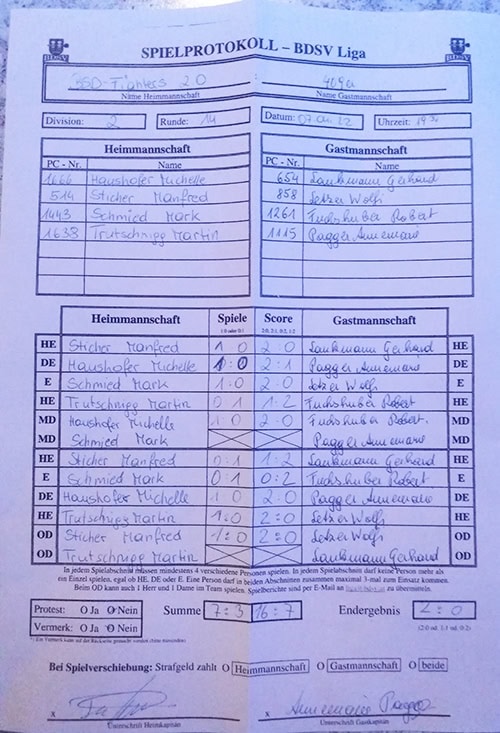 SPIELPROTOKOLL – BDSV Liga
BSD-Fighters 2.0 :
Name Heimmannschaft Name Gastmannschaft
Division: 2 Runde: 14 Datum: Uhrzeit:
Heimmannschaft Gastmannschaft
PC - Nr. Name PC - Nr. Name
1666 Haushofer Michelle 654 Lankmann Gerhard
514 Sticher Manfred 858 Setzer Wolfi
1443 Schmied Mark 1261 Fuchshuber Robert
1638 Trutschnigg Martin 1115 Pagger Annemarie
Heimmannschaft Spiele Score Gastmannschaft
1:0 oder 0:1 2:0, 2:1, 0:2, 1:2
HE Sticher Manfred 1 0 2:0 Lankmann Gerhard HE
DE Haushofer Michelle 1:0 2:1 Pagger Annemarie DE
E Schmied Mark 1:0 2:0 Setzer Wolfi E
HE Trutschnigg Martin 0 1 1:2 Fuchshuber Robert HE
MD Haushofer Michelle 1 0 2:0 Fuchshuber Robert. MD
MD Schmied Mark Pagger Annemarie MD
HE Sticher Manfred 0:1 1:2 Lankmann Gerhard HE
E Schmied Mark 0 1 0:2 Fuchshuber Robert E
DE Haushofer Michelle 1 0 2:0 Pagger Annemarie DE
HE Trutschnigg Martin 1:0 2:0 Setzer Wolfi HE
OD Sticher Manfred 1:0 2:0 Setzer Wolfi OD
OD Trutschnigg Martin Lankmann Gerhard OD
In jedem Spielabschnitt müssen mindestens 4 verschiedene Personen spielen. In jedem Spielabschnitt darf keine Person mehr als
ein Einzel spielen, egal ob HE, DE oder E. Eine Person darf in beiden Abschnitten zusammen maximal 3-mal zum Einsatz kommen.
Beim OD kann auch 1 Herr und 1 Dame im Team spielen. Spielberichte sind per E-Mail an zu übermitteln.
Protest: O Ja O Nein Summe 7:3 16:7 Endergebnis 2:0
Vermerk: O Ja O Nein (2:0 od. 1:1 od. 0:2)
Bei Spielverschiebung: Strafgeld zahlt O Heimmannschaft O Gastmannschaft O beide
x x Annemarie Pagger
Unterschrift Heimkapitän Unterschrift Gastkapitän